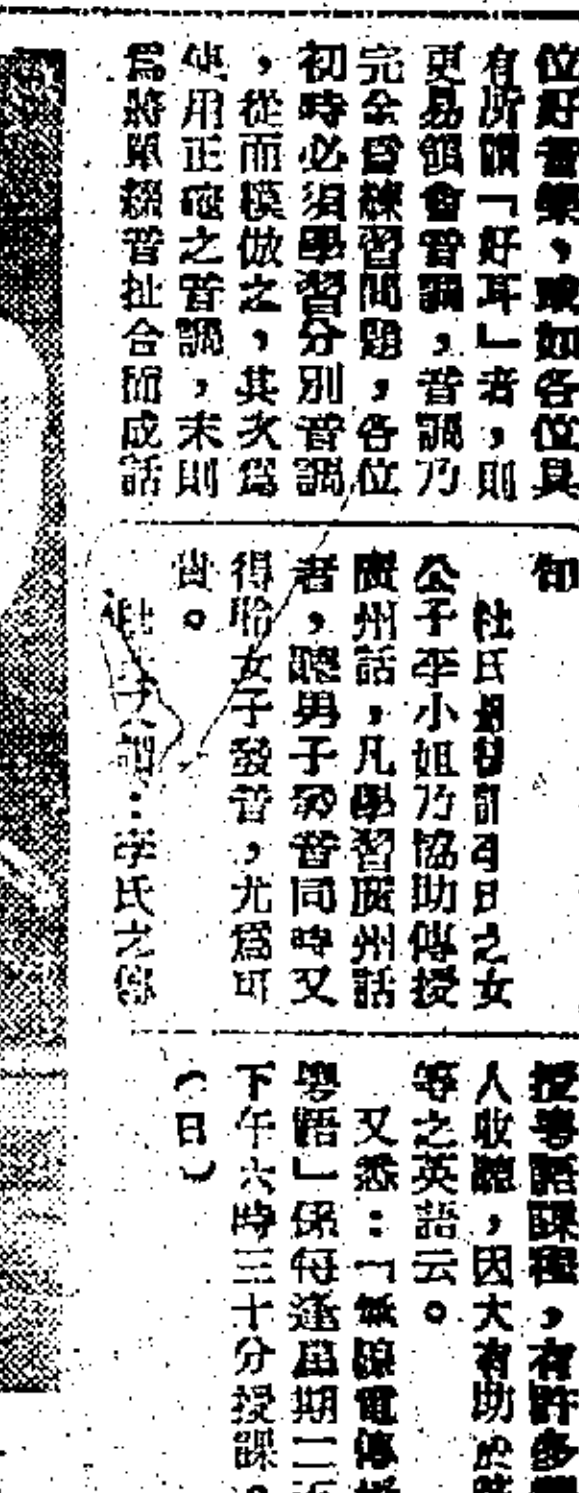 位好音樂，或如各位具
有所謂「好耳」者，則
更易領會音調，音調乃
完全爲練習問題，各位
初時必須學習分別音調
，從而模倣之，其次爲
使用正確之音調，末則
爲將單綴音扯合而成話
知
杜氏
日之女
公子李小姐乃協助傳授
廣州話，凡學習廣州話
者，聽男子發音同時又
得聆女子發音，尤爲可
貴。
氏之
授粵語課程，有許多
人收聽，因大有助於
等之英語云。
又悉：「無線電傳授
粵語」係每逢星期二
下午六時三十分授課。
（日）